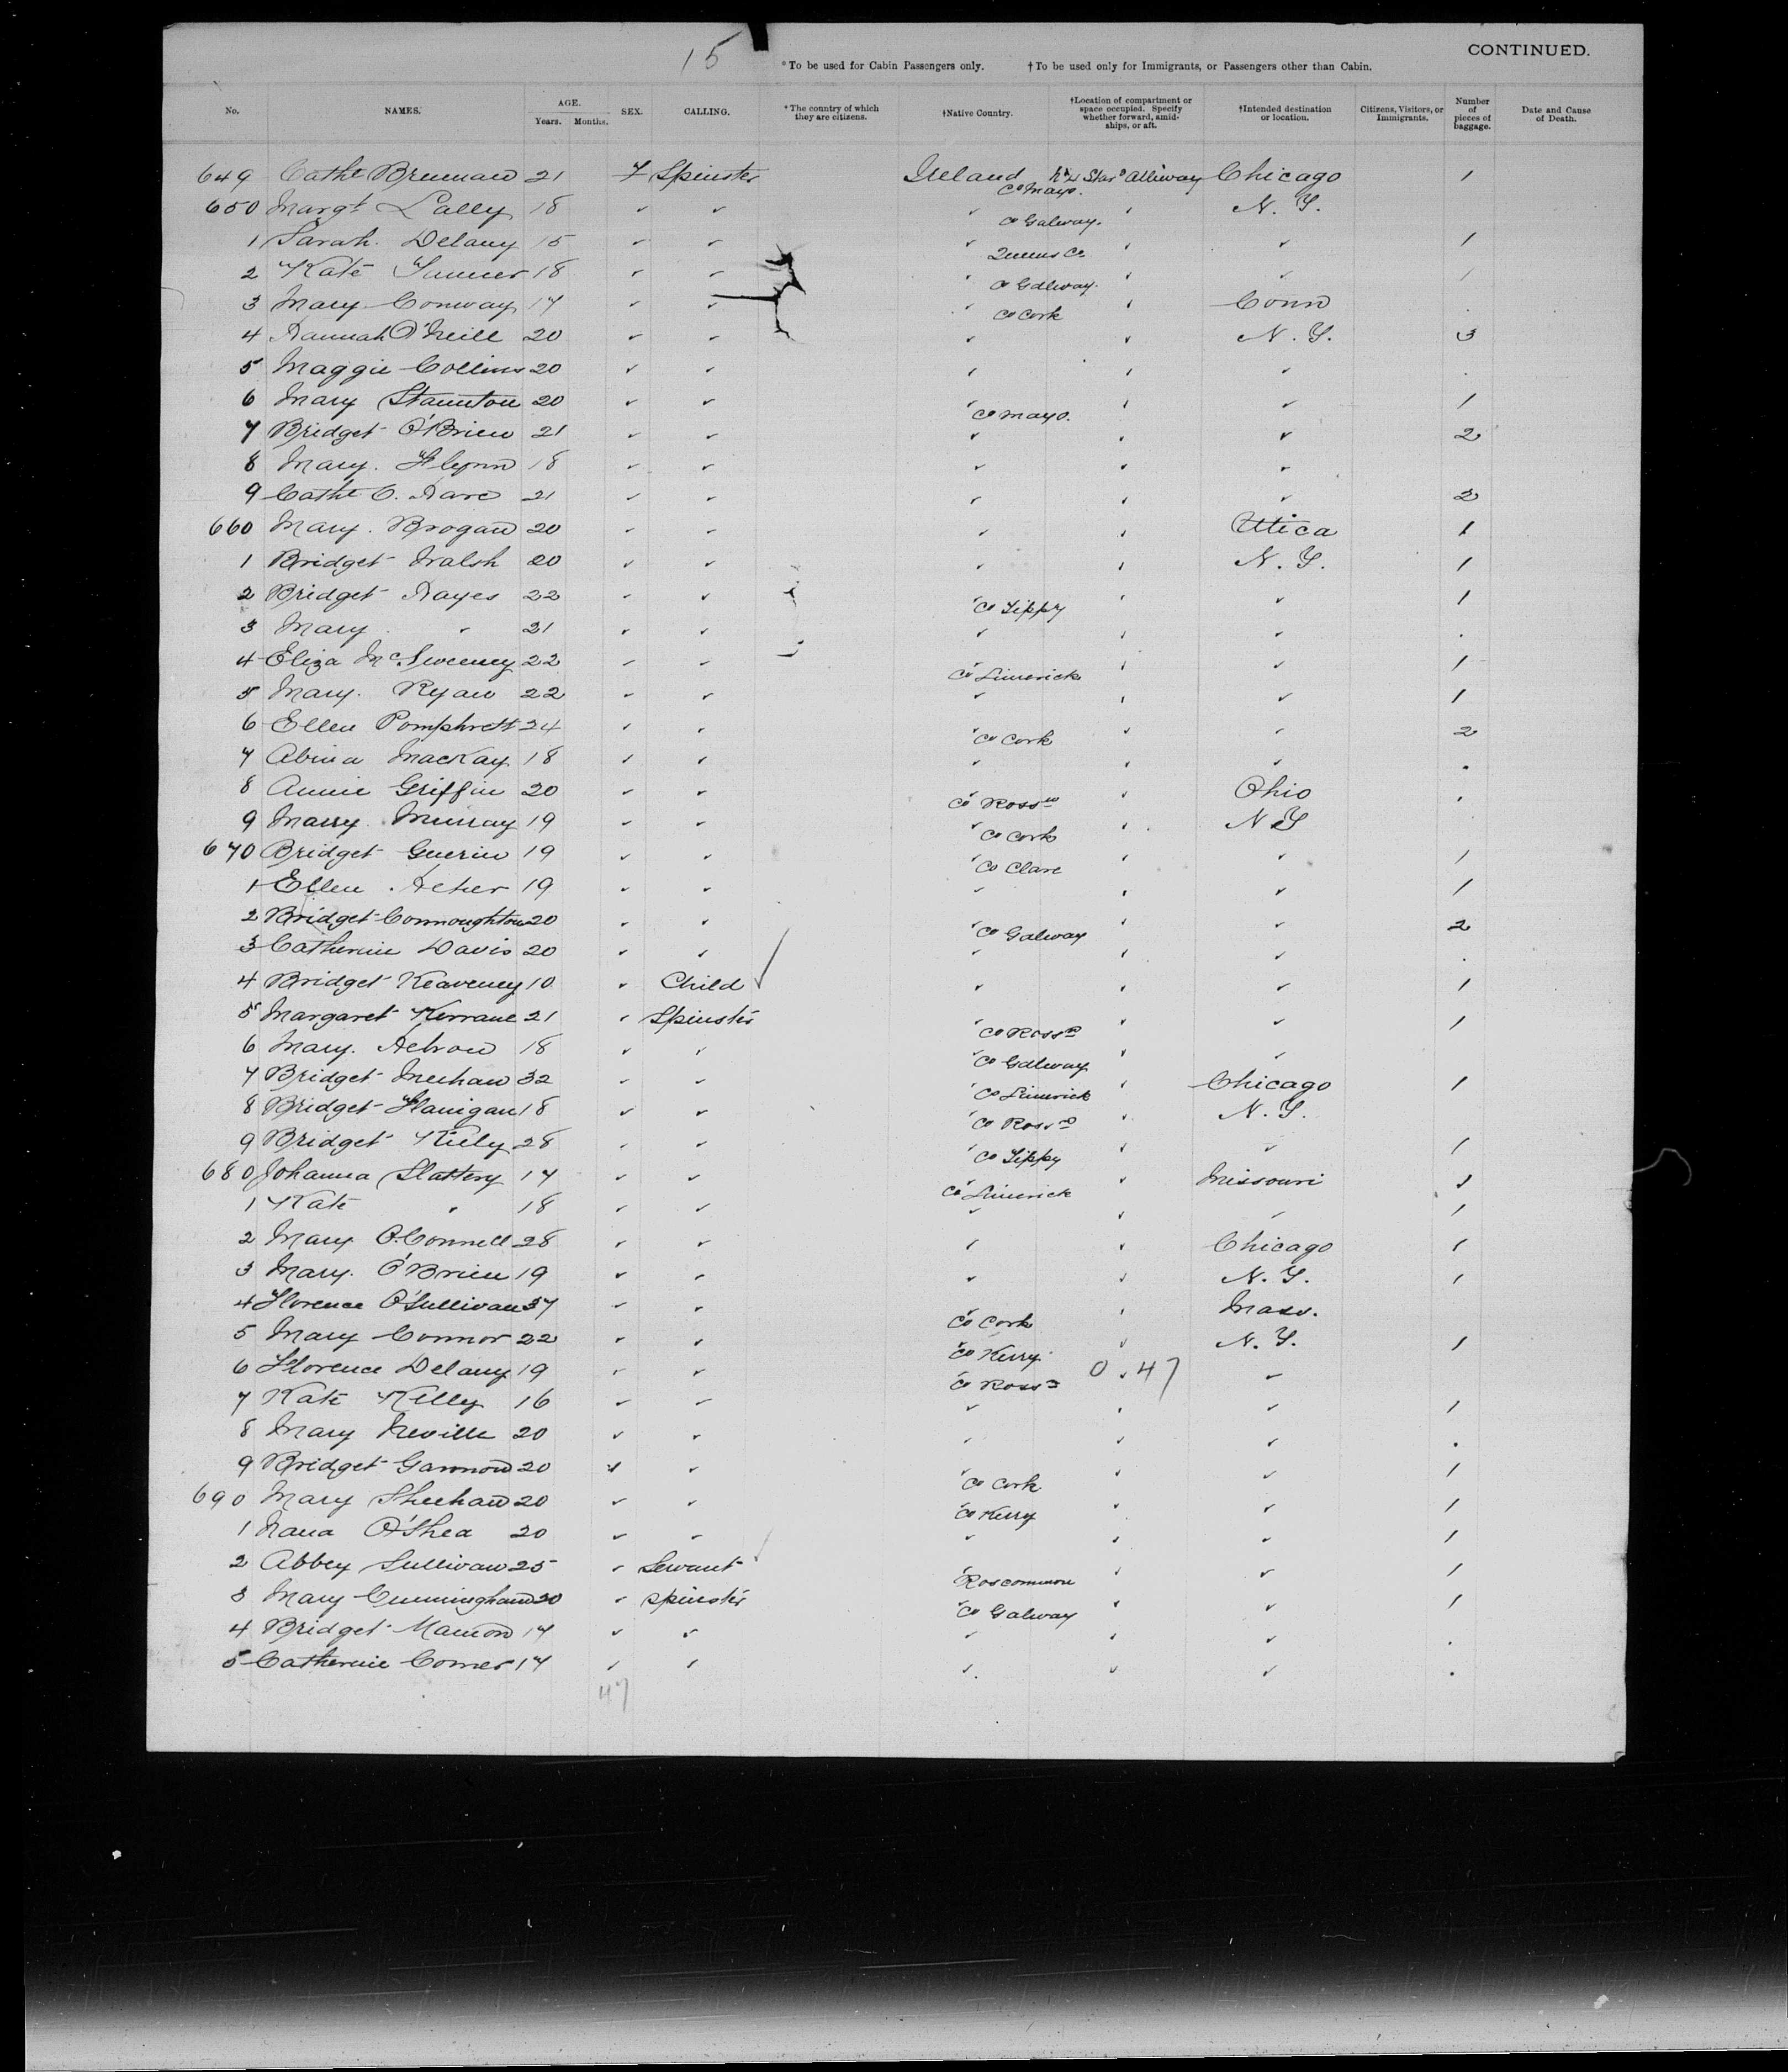 15
CONTINUED.
*To be used for Cabin Passengers only. †To be used only for Immigrants, or Passengers other than Cabin.
No. NAMES. AGE. Years. Months. SEX. CALLING. *The country of which they are citizens. †Native Country. †Location of compartment or space occupied. Specify whether forward, amidships, or aft. †Intended destination or location. Citizens, Visitors, or Immigrants. Number of pieces of baggage. Date and Cause of Death.
649 Cathe Brennan 21 F Spinster Ireland Co Mayo. Star Alliway Chicago 1
650 Margt Lally 18 " " " Co Galway. " N.Y.
1 Sarah Delany 15 " " " Queens Co " " 1
2 Kate 18 " " " Co Galway. " " 1
3 Mary Conway 17 " " " Co Cork " Conn
4 Hannah O'Neill 20 " " " " N.Y. 3
5 Maggie Collins 20 " " " " " .
6 Mary Staunton 20 " " " Co Mayo. " " 1
7 Bridget O'Brien 21 " " " " " 2
8 Mary Flynn 18 " " " " "
9 Cathe C. Hare 21 " " " " " 2
660 Mary Brogan 20 " " " " Utica 1
1 Bridget Walsh 20 " " " " N.Y. 1
2 Bridget Hayes 22 " " " Co Tippy " " 1
3 Mary " 21 " " " " " .
4 Eliza McSweeney 22 " " " Co Limerick " " 1
5 Mary Ryan 22 " " " " " 1
6 Ellen Pomphrett 24 " " " Co Cork " " 2
7 Abina Mackay 18 " " " " " .
8 Annie Griffin 20 " " " Co Rossn " Ohio .
9 Mary Murray 19 " " " Co Cork " N.Y
670 Bridget Guerin 19 " " " Co Clare " " 1
1 Ellen Heher 19 " " " " " 1
2 Bridget Connoughton 20 " " " Co Galway " " 2
3 Catherine Davis 20 " " " " " .
4 Bridget Keaveney 10 " Child " " " 1
5 Margaret Kerrane 21 " Spinster " Co Rossn " " 1
6 Mary 18 " " " Co Galway " "
7 Bridget Meehan 32 " " " Co Limerick " Chicago 1
8 Bridget Flanigan 18 " " " Co Rossn " N.Y.
9 Bridget Kiely 28 " " " Co Tippy " " 1
680 Johanna Slattery 17 " " " Co Limerick " Missouri 1
1 Kate " 18 " " " " " 1
2 Mary O'Connell 28 " " " " Chicago 1
3 Mary O'Brien 19 " " " " N.Y. 1
4 Florence O'Sullivan 37 " " " Co Cork " Mass.
5 Mary Connor 22 " " " Co Kerry " N.Y. 1
6 Florence Delany 19 " " " Co Rossn 0.47 "
7 Kate Kelly 16 " " " " " 1
8 Mary Neville 20 " " " " " .
9 Bridget Gannon 20 " " " Co Cork " " 1
690 Mary Sheehan 20 " " " Co Kerry " " 1
1 Nana O'Shea 20 " " " " " 1
2 Abbey Sullivan 25 " Servant " Roscommon " " 1
3 Mary Cunningham 20 " Spinster " Co Galway " " 1
4 Bridget Mannon 17 " " " " " .
5 Catherine Comer 17 " " " " " .
47